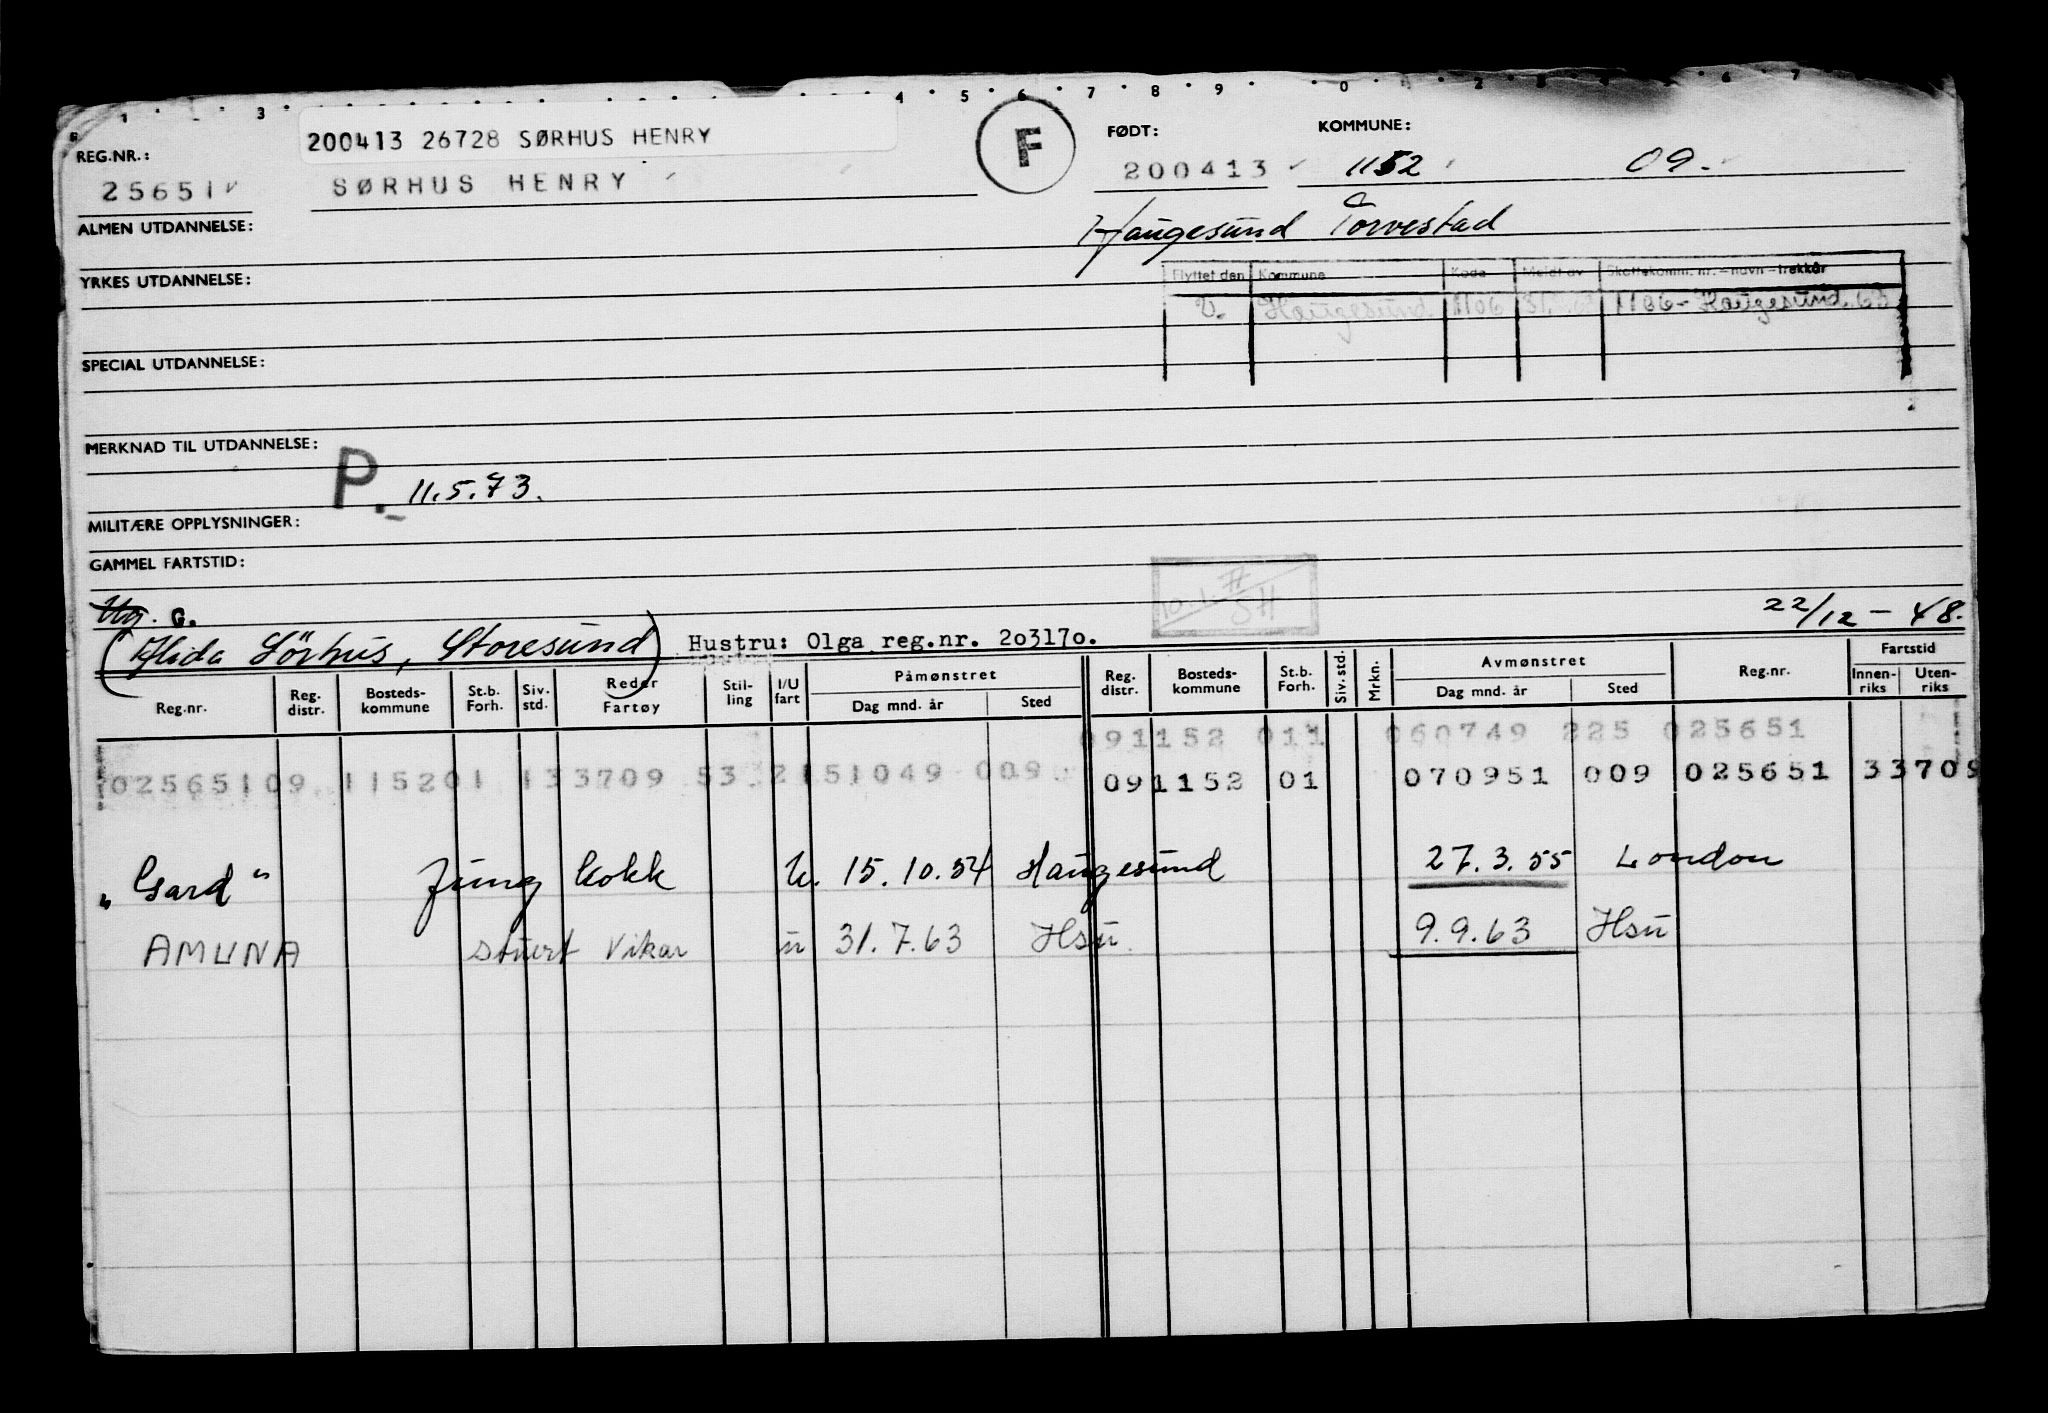 200413 26728 SØRHUS HENRY
F
FØDT:
KOMMUNE:
REG.NR.:
25651
SØRHUS HENRY
200413
1152
09.
ALMEN UTDANNELSE:
Haugesund Torvestad
YRKES UTDANNELSE:
Flyttet den Kommune Kode Meldt av Skattekomm. nr. - navn - trekkår
U. Haugesund. 1106 1106- Haugesund. 63
SPECIAL UTDANNELSE:
MERKNAD TIL UTDANNELSE:
P. 11.5.73.
MILITÆRE OPPLYSNINGER:
GAMMEL FARTSTID:
Ug. G.
22/12 - 48.
(Alida Sörhus, Storesund) Hustru: Olga reg.nr. 203170.
Reg.nr. Reg. distr. Bosteds-kommune St.b. Forh. Siv. std. Reder Fartøy Stil-ling I/U fart Påmønstret Dag mnd. år Sted Reg. distr. Bosteds-kommune St.b. Forh. Siv. std. Mrkn. Avmønstret Dag mnd. år Sted Reg.nr. Fartstid Innen-riks Uten-riks
091152 011 060749 225 025651
02565109 115201 133709 53 2151049 009 091152 01 070951 009 025651 33709
„Gard" Jung kokk U. 15.10.54 Haugesund 27.3.55 London
AMUNA stuert Vikar u 31.7.63 Hsu. 9.9.63 Hsu